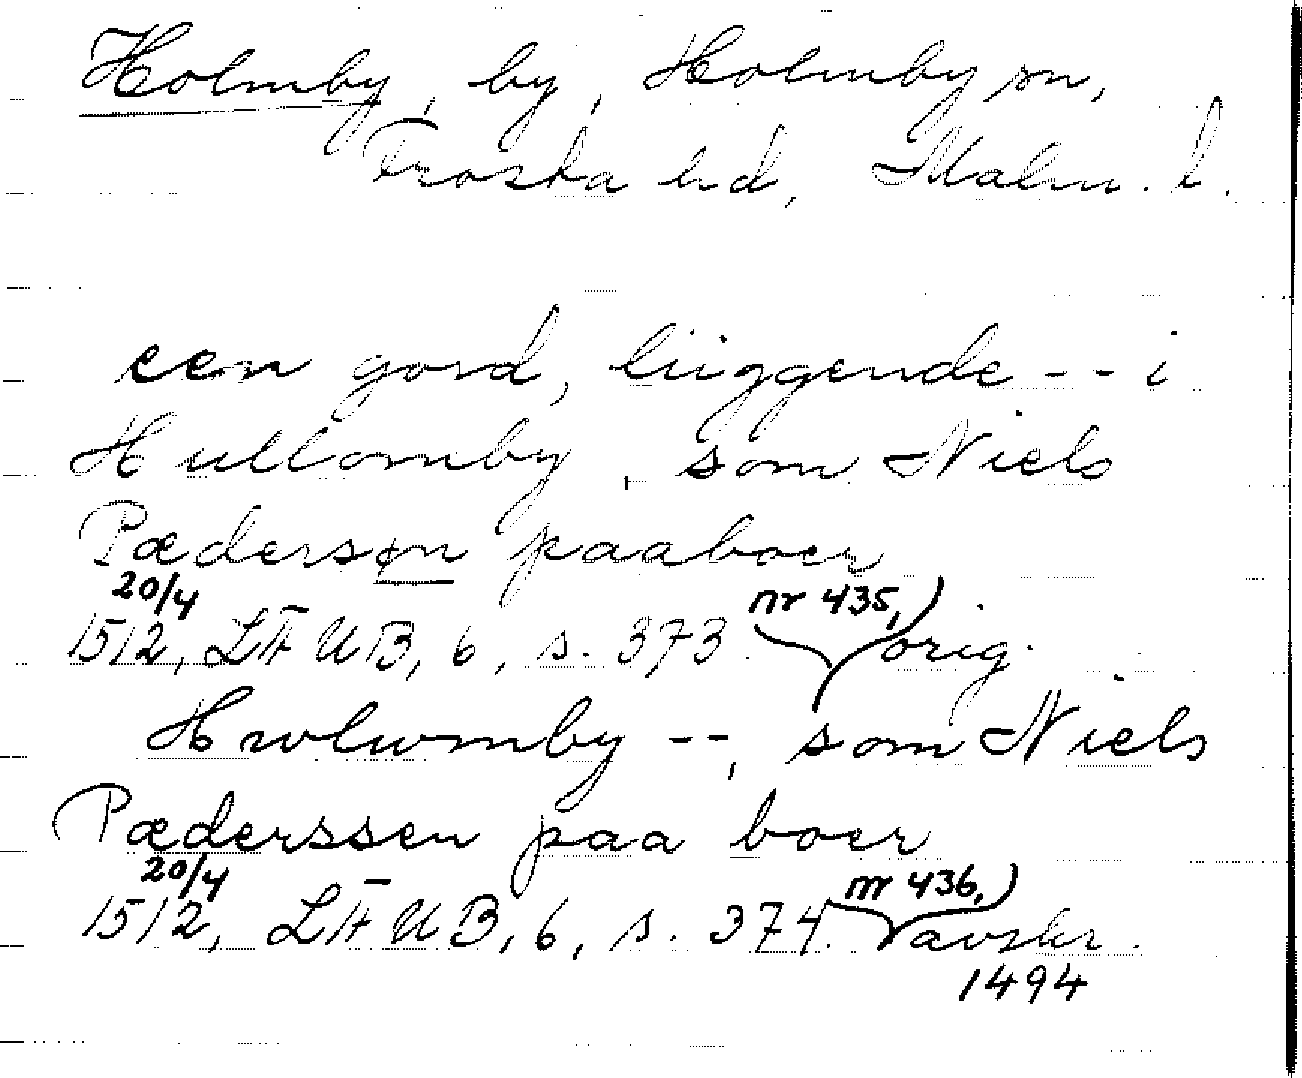 Holmby, by, Holmby sn,
Frosta hd, Malm. l.
een gord, liiggende -- i
Hullomby, som Niels
Pædersøn paaboer
20/4 nr 435,)
1512, LÄUB, 6, s. 373. orig.
Hwlwmby --, som Niels
Pæderssen paa boer
20/4 nr 436,)
1512, LÄUB, 6, s. 374. avskr.
1494